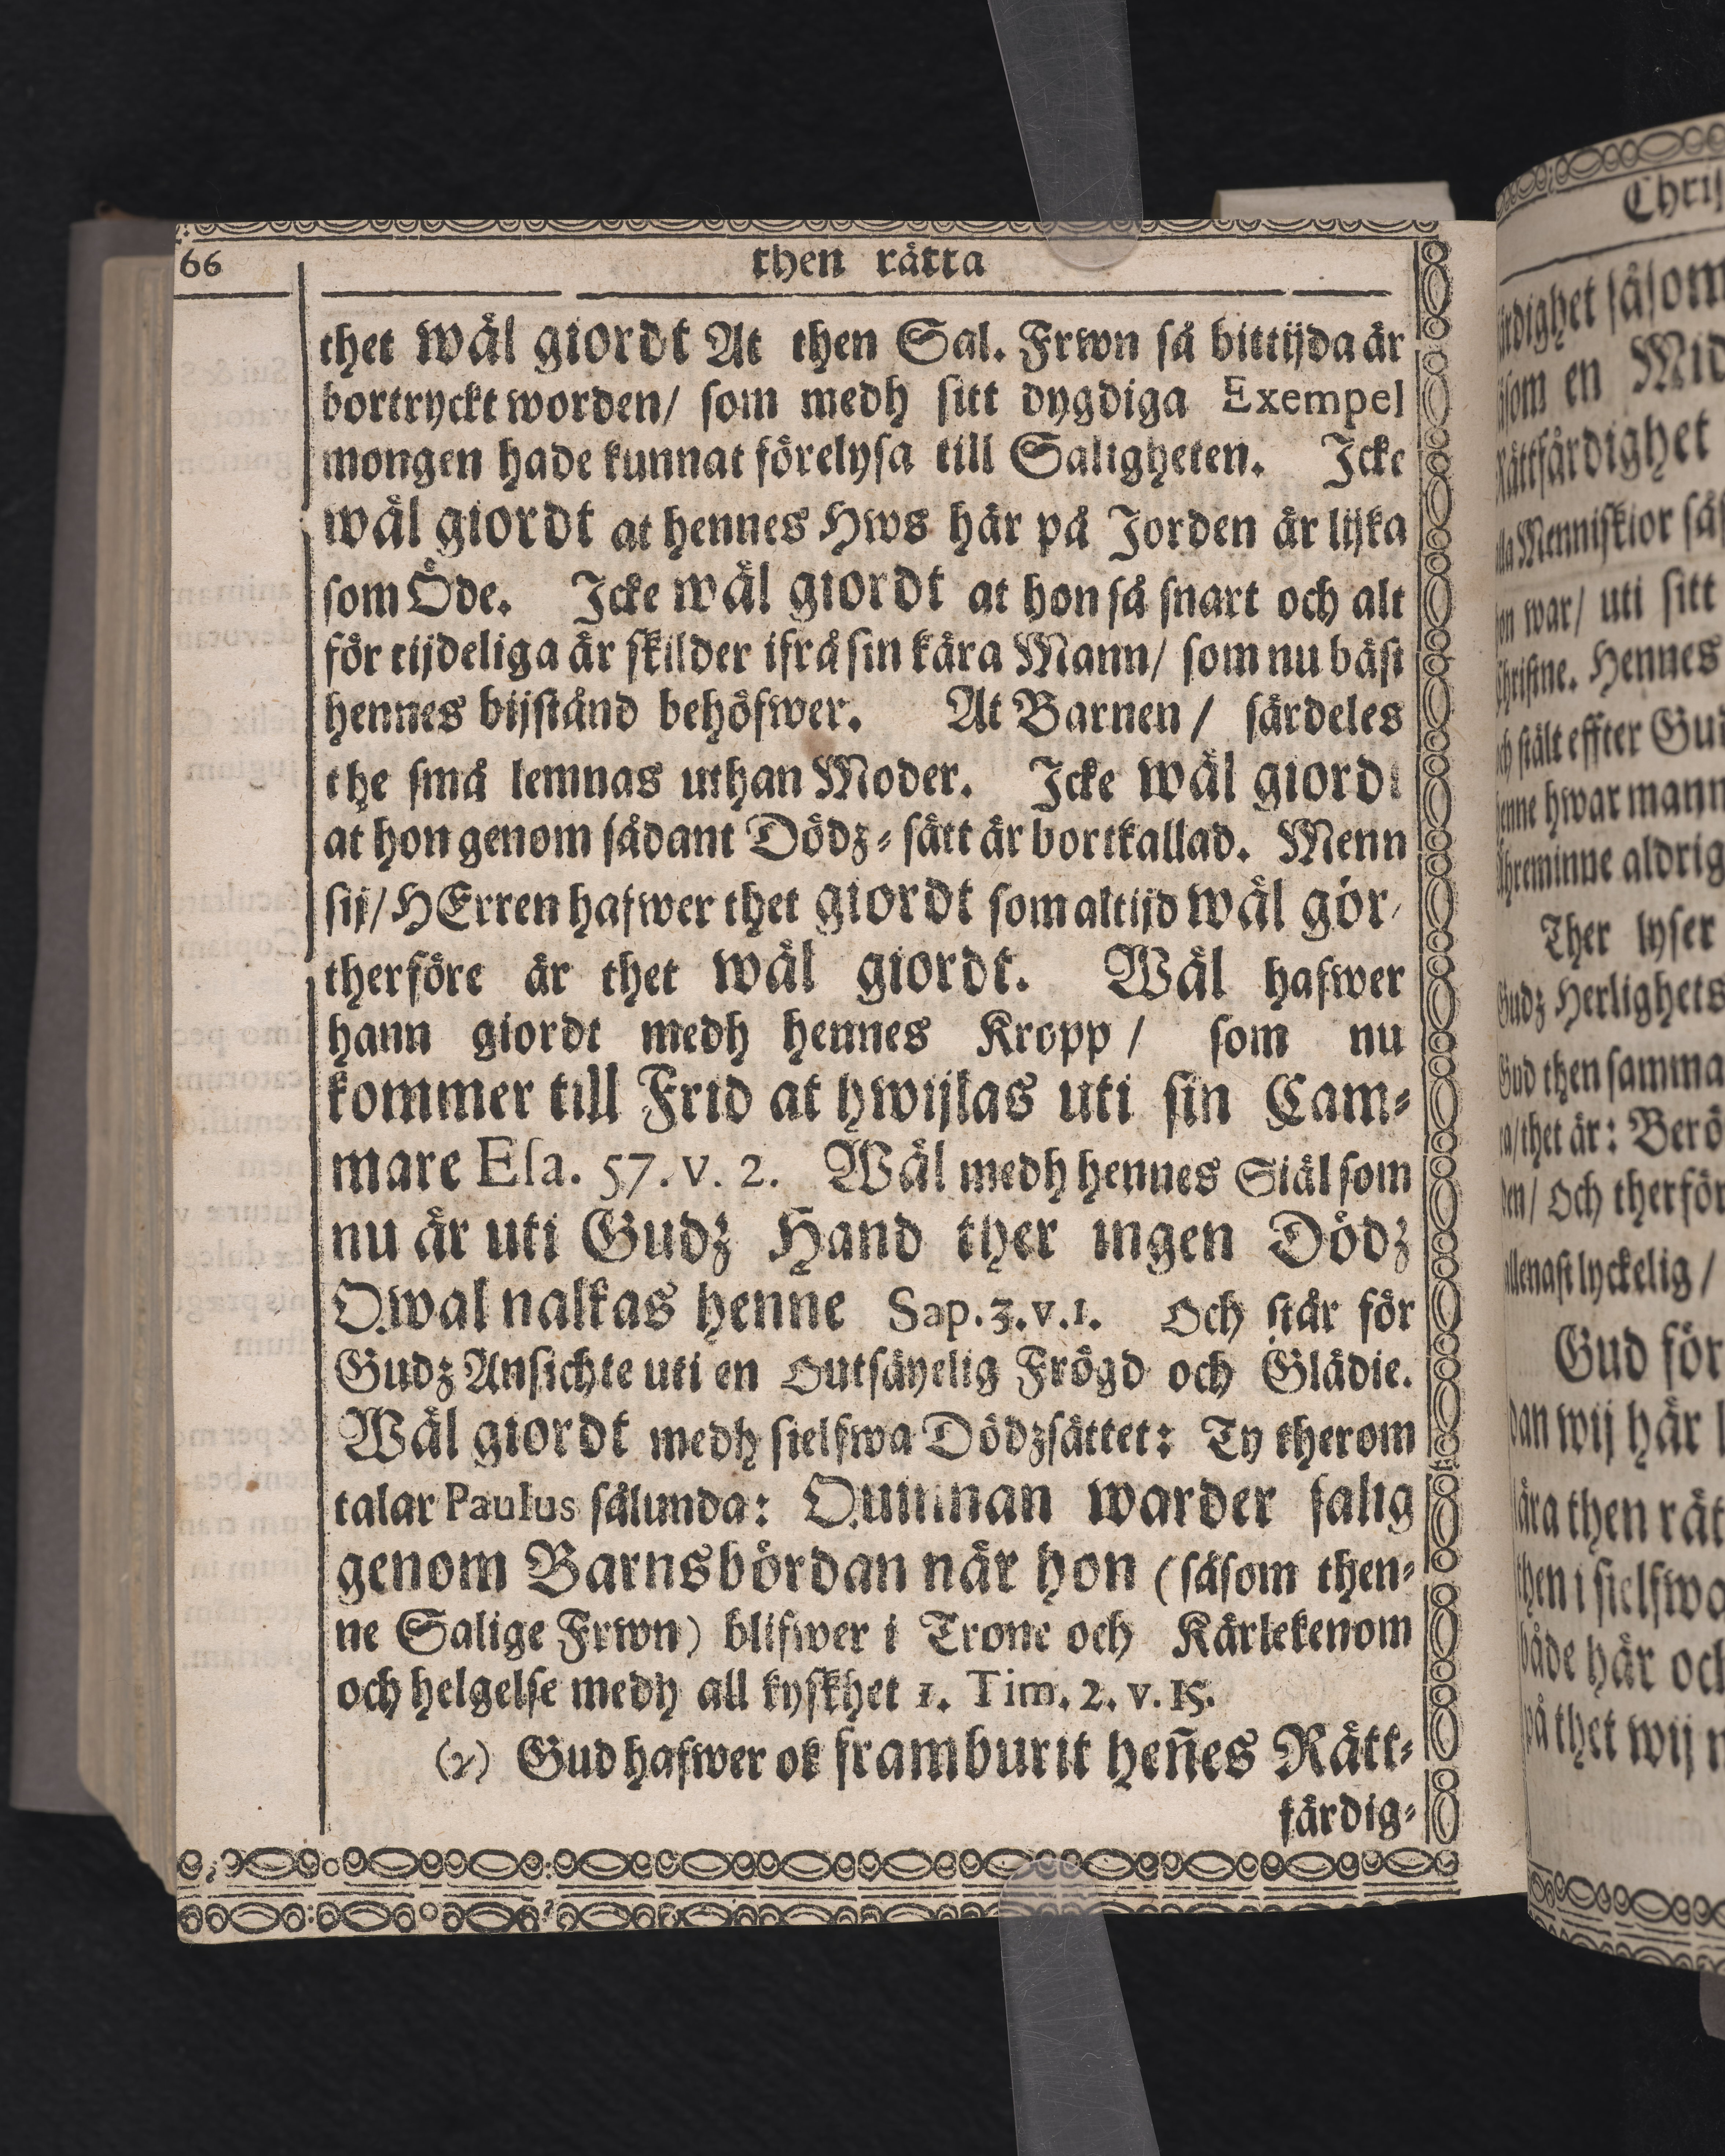 66
then rätta
thet wäl giordt At then Sal. Frwn så bittijda är
bortryckt worden/ som medh sitt dygdiga Exempel
mongen hade kunnat förelysa till Saligheten. Icke
wäl giordt at hennes Hws här på Jorden är lijka
som Öde. Icke wäl giordt at hon så snart och alt
för tijdeliga är skilder ifrå sin kära Mann/ som nu bäst
hennes bijstånd behöfwer. At Barnen / särdeles
the små lemnas uthan Moder. Icke wäl giordt
at hon genom sådant Dödz-sätt är bortkallad. Menn
sij/ HErren hafwer thet giordt som altijd wäl gör/
therföre är thet wäl giordt. Wäl hafwer
hann giordt medh hennes Kropp / som nu
kommer till Frid at hwijlas uti sin Cam-
mare Esa. 57. v. 2. Wäl medh hennes Siäl som
nu är uti Gudz Hand ther ingen Dödz
Qwal nalkas henne Sap. 3. v. 1. Och står för
Gudz Ansichte uti en Outsäyelig Frögd och Glädie.
Wäl giordt medh sielfwa Dödzsättet: Ty therom
talar Paulus sålunda: Quinnan warder salig
genom Barnsbördan när hon (såsom then-
ne Salige Frwn) blifwer i Trone och Kärlekenom
och helgelse medh all kyskhet 1. Tim. 2. v. 15.
(2) Gud hafwer ok framburit heñes Rätt-
färdig-
Chris
ärdighet såsom
såsom en Mid
Rättfärdighet
alla Menniskior sås
hon war/ uti sitt
Christne. Hennes
och stält effter Gud
henne hwar mann
Ähreminne aldrig
Ther lyser
Gudz Herlighets
Gud then samma
/thet är: Berö
den/ Och therför
allenast lyckelig /
Gud för
dan wij här
lära then rät
then i sielfwa
både här och
på thet wij